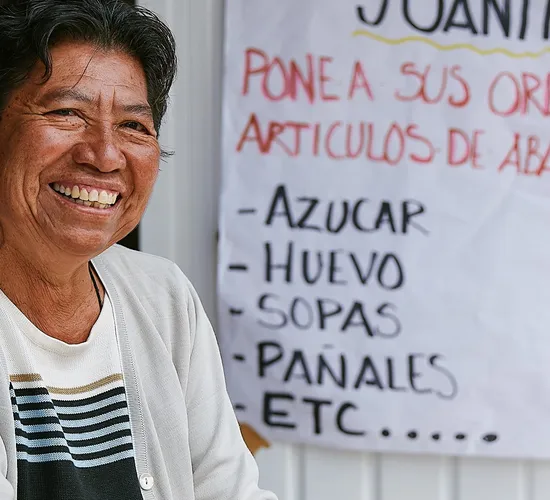 PONE A SUS
ARTICULOS DE
- AZUCAR
- HUEVO
- SOPAS
- PAÑALES
- ETC.....